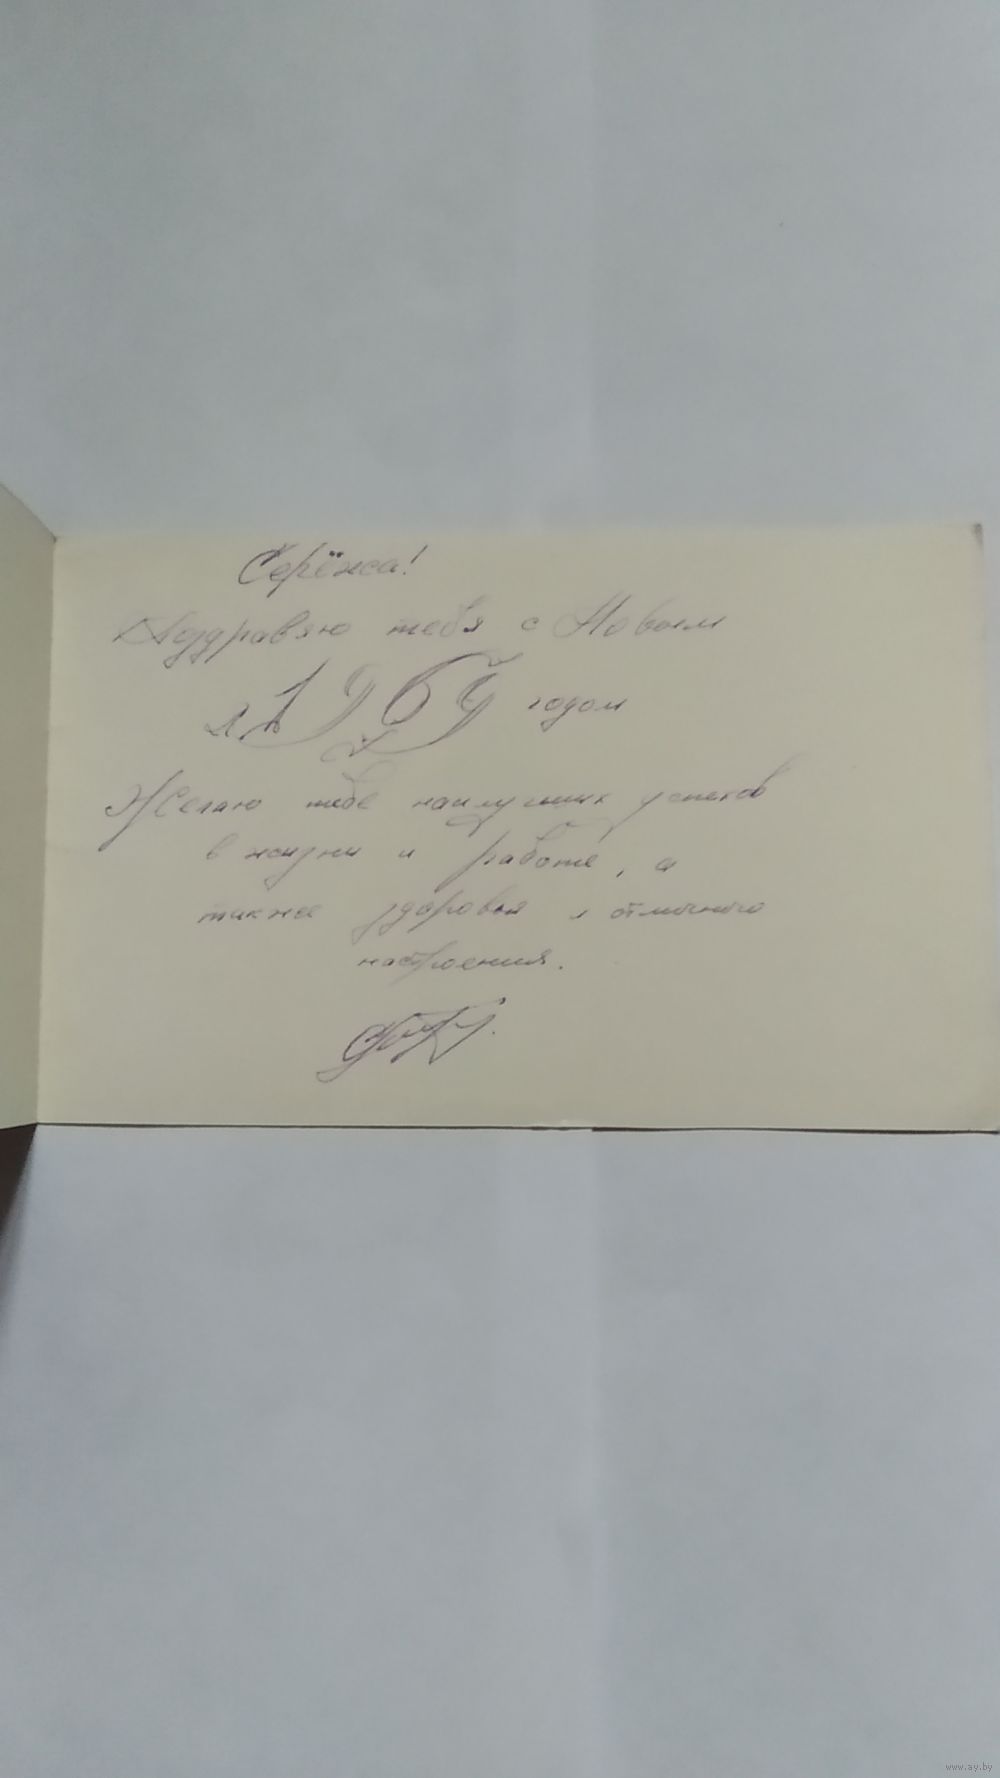 Серёжа!
Поздравяю тебя с Новым
годом
Желаю тебе наилучших успехов
в жизни и работе, а
также здоровья и отличного
настроения.
www.ay.by